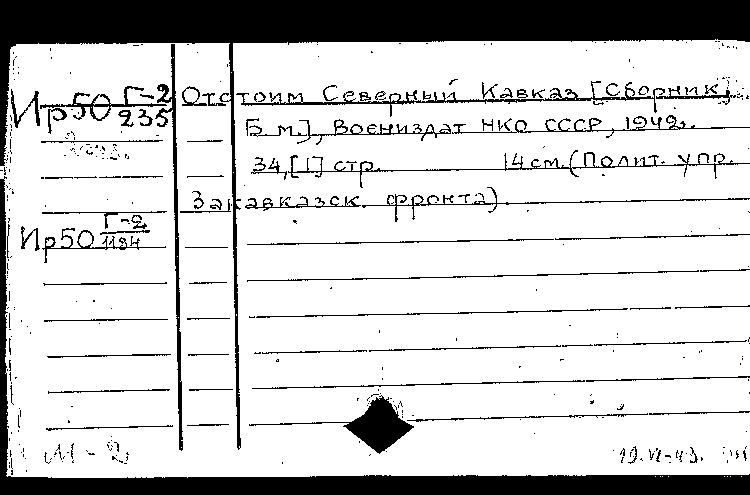 Ир50 Г-2/235 Отстоим Северный Кавказ [Сборник].
Б. м.], Воениздат НКО СССР, 1942.
2 экз.
34, [1] стр. 14 см. (Полит. упр.
Закавказск. фронта).
Ир50 Г-2/1184
М-2